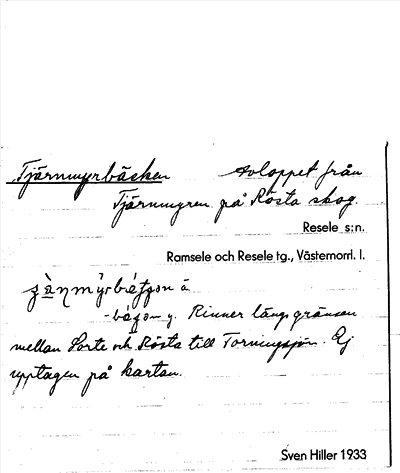 Tjärnmyrbäcken Avloppet från
Tjärnmyren på Rösta skog.
Resele s:n.
Ramsele och Resele tg., Västernorrl. l.
Rinner längs gränsen
mellan Sorte och Rösta till Torningsjön. Ej
upptagen på kartan.
Sven Hiller 1933